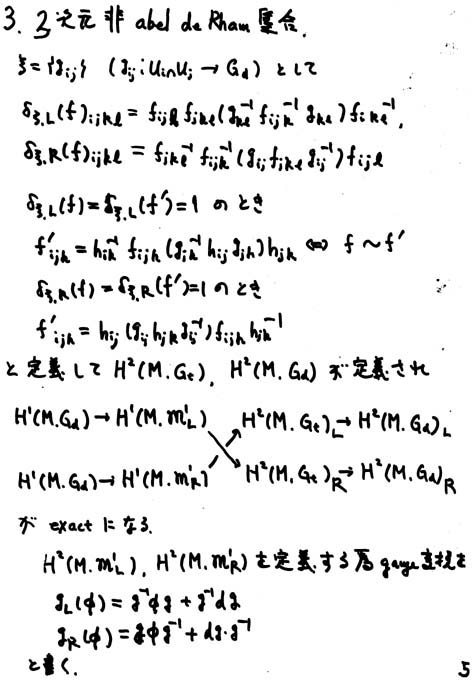 3. 3次元非 abel de Rham 集合.
ξ = {g_ij} (g_ij : U_i∩U_j → G_d) として
δ_ξ,L(f)_ijkl = f_ijl f_jkl (g_kl^-1 f_ijk^-1 g_kl) f_ikl^-1,
δ_ξ,R(f)_ijkl = f_ikl^-1 f_ijk^-1 (g_ij f_jkl g_ij^-1) f_ijl
δ_ξ,L(f) = δ_ξ,L(f') = 1 のとき
f'_ijk = h_ik^-1 f_ijk (g_jk^-1 h_ij g_jk) h_jk ⇔ f ~ f'
δ_ξ,R(f) = δ_ξ,R(f') = 1 のとき
f'_ijk = h_ij (g_ij h_jk g_ij^-1) f_ijk h_ik^-1
と定義して H²(M.G_t), H²(M.G_d) が定義され
H¹(M.G_d) → H¹(M.m¹_L) H²(M.G_t)_L → H²(M.G_d)_L
H¹(M.G_d) → H¹(M.m¹_R) H²(M.G_t)_R → H²(M.G_d)_R
が exact になる.
H²(M.m¹_L), H²(M.m¹_R) を定義する為 gauge 変換を
g_L(φ) = g^-1 φ g + g^-1 dg
g_R(φ) = g φ g^-1 + dg·g^-1
と書く.
5